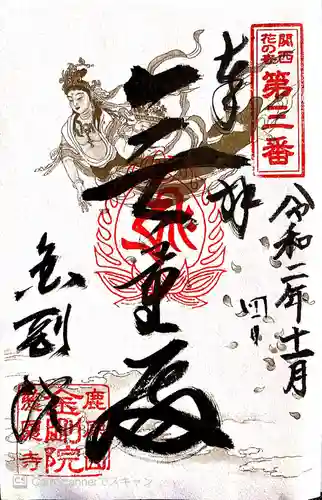 関西
花の寺
第三番
奉拝
令和二年十一月
四日
金剛院
鹿原山
金剛院
慈恩寺
CamScannerでスキャン